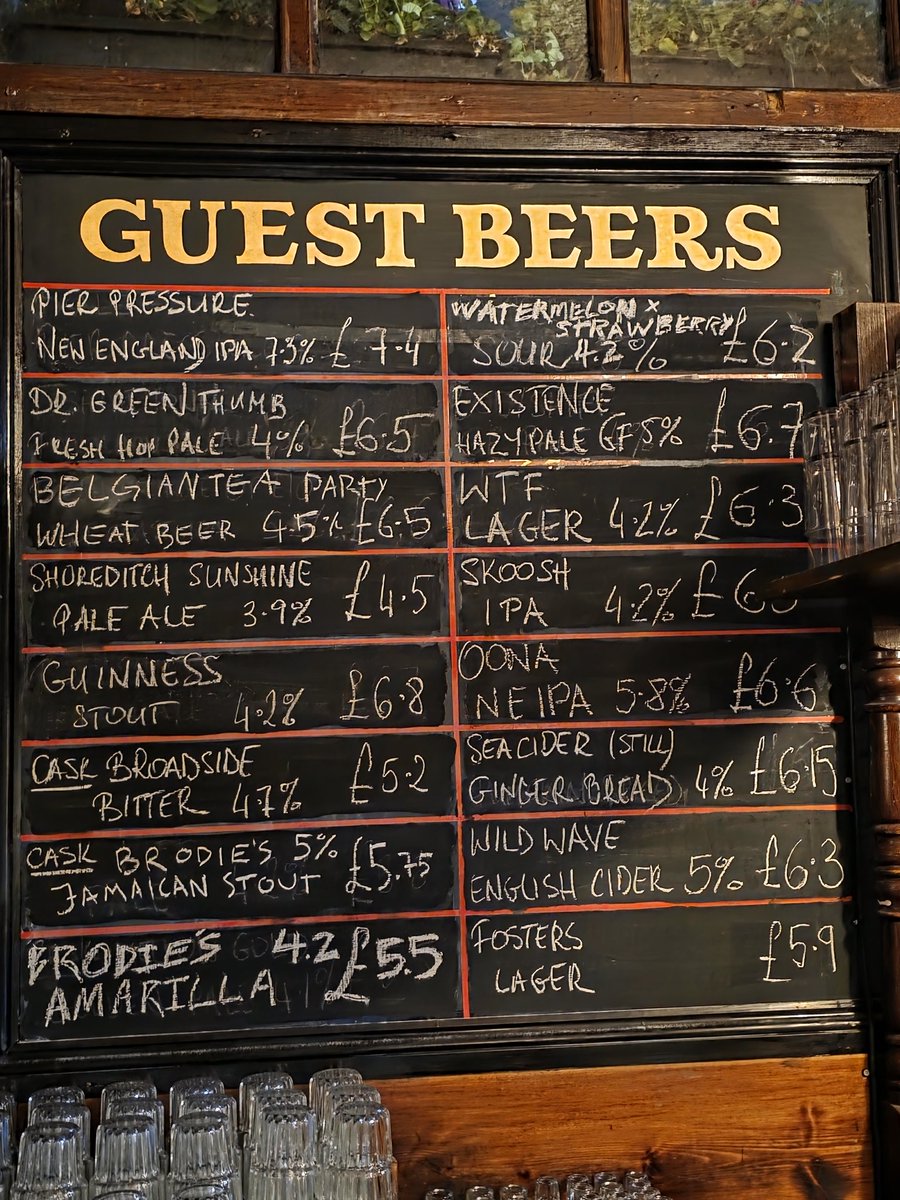 GUEST BEERS
PIER PRESSURE
NEW ENGLAND IPA 7.3% £7.4
DR. GREENTHUMB
FRESH HOP PALE 4% £6.5
BELGIAN TEA PARTY
WHEAT BEER 4.5% £6.5
SHOREDITCH SUNSHINE
PALE ALE 3.9% £4.5
GUINNESS
STOUT 4.2% £6.8
CASK BROADSIDE
BITTER 4.7% £5.2
CASK BRODIE'S 5%
JAMAICAN STOUT £5.75
BRODIE'S 4.2 £5.5
AMARILLA
WATERMELON x
STRAWBERRY
SOUR 4.2% £6.2
EXISTENCE
HAZY PALE GF 5% £6.7
WTF
LAGER 4.2% £6.3
SKOOSH
IPA 4.2%
OONA
NEIPA 5.8% £6.6
SEACIDER (STILL)
GINGERBREAD 4% £6.15
WILD WAVE
ENGLISH CIDER 5% £6.3
FOSTERS
LAGER £5.9